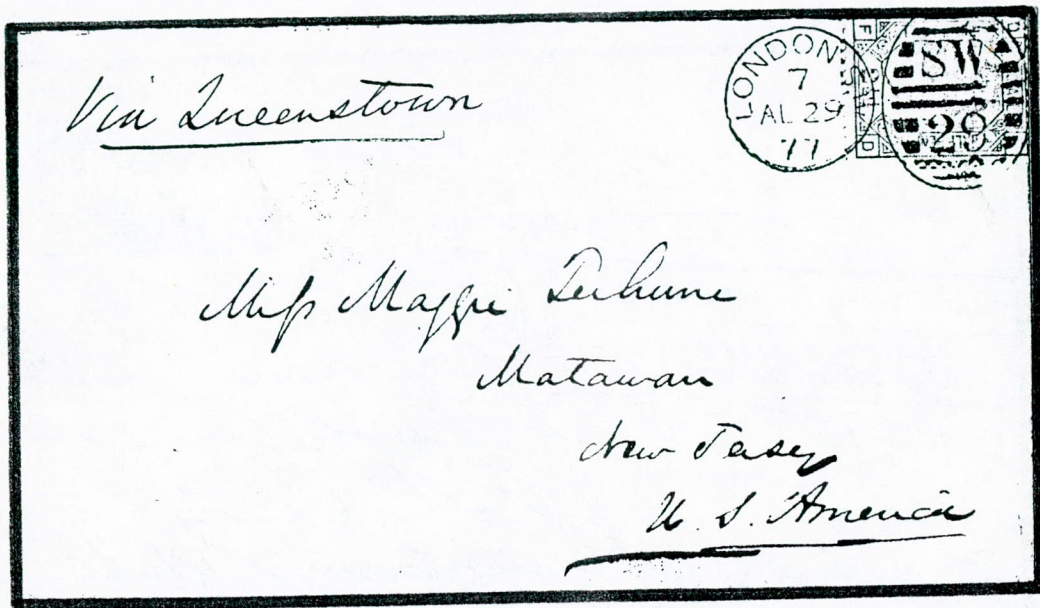 Via Queenstown
LONDON S.W
7
AL 29
77
SW
29
Miss Maggie Terhune
Matawan
New Jersey
U. S. America